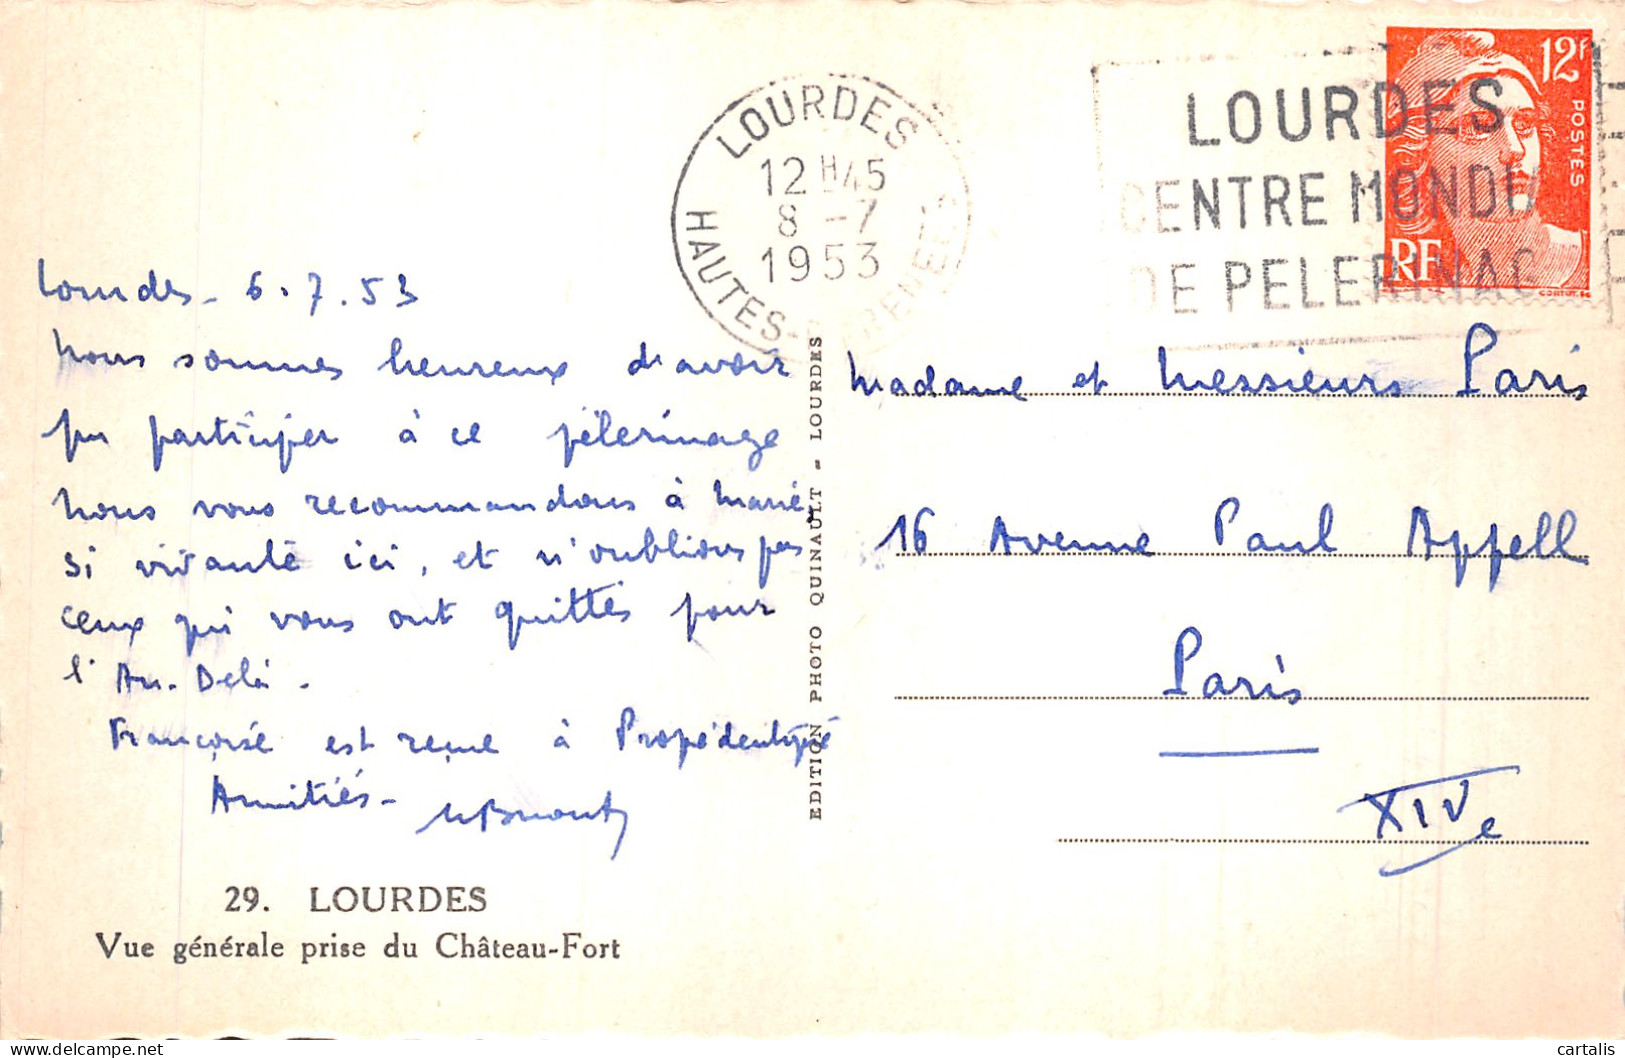 Lourdes - 6.7.53
Nous sommes heureux d'avoir
pu participer à ce pélerinage
Nous vous recommandons à Marie
si vivante ici, et n'oublions pas
ceux qui vous ont quittés pour
l'Au-Delà.
Françoise est reçue à Propédeutique
Amitiés -
29. LOURDES
Vue générale prise du Château-Fort
EDITION PHOTO QUINAULT - LOURDES
LOURDES
12 H 45
8 - 7
1953
HAUTES-PYRENEES
LOURDES
CENTRE MONDI
DE PELERINAG
12F
POSTES
RF
Madame et Messieurs Paris
16 Avenue Paul Appell
Paris
XIVe
cartalis